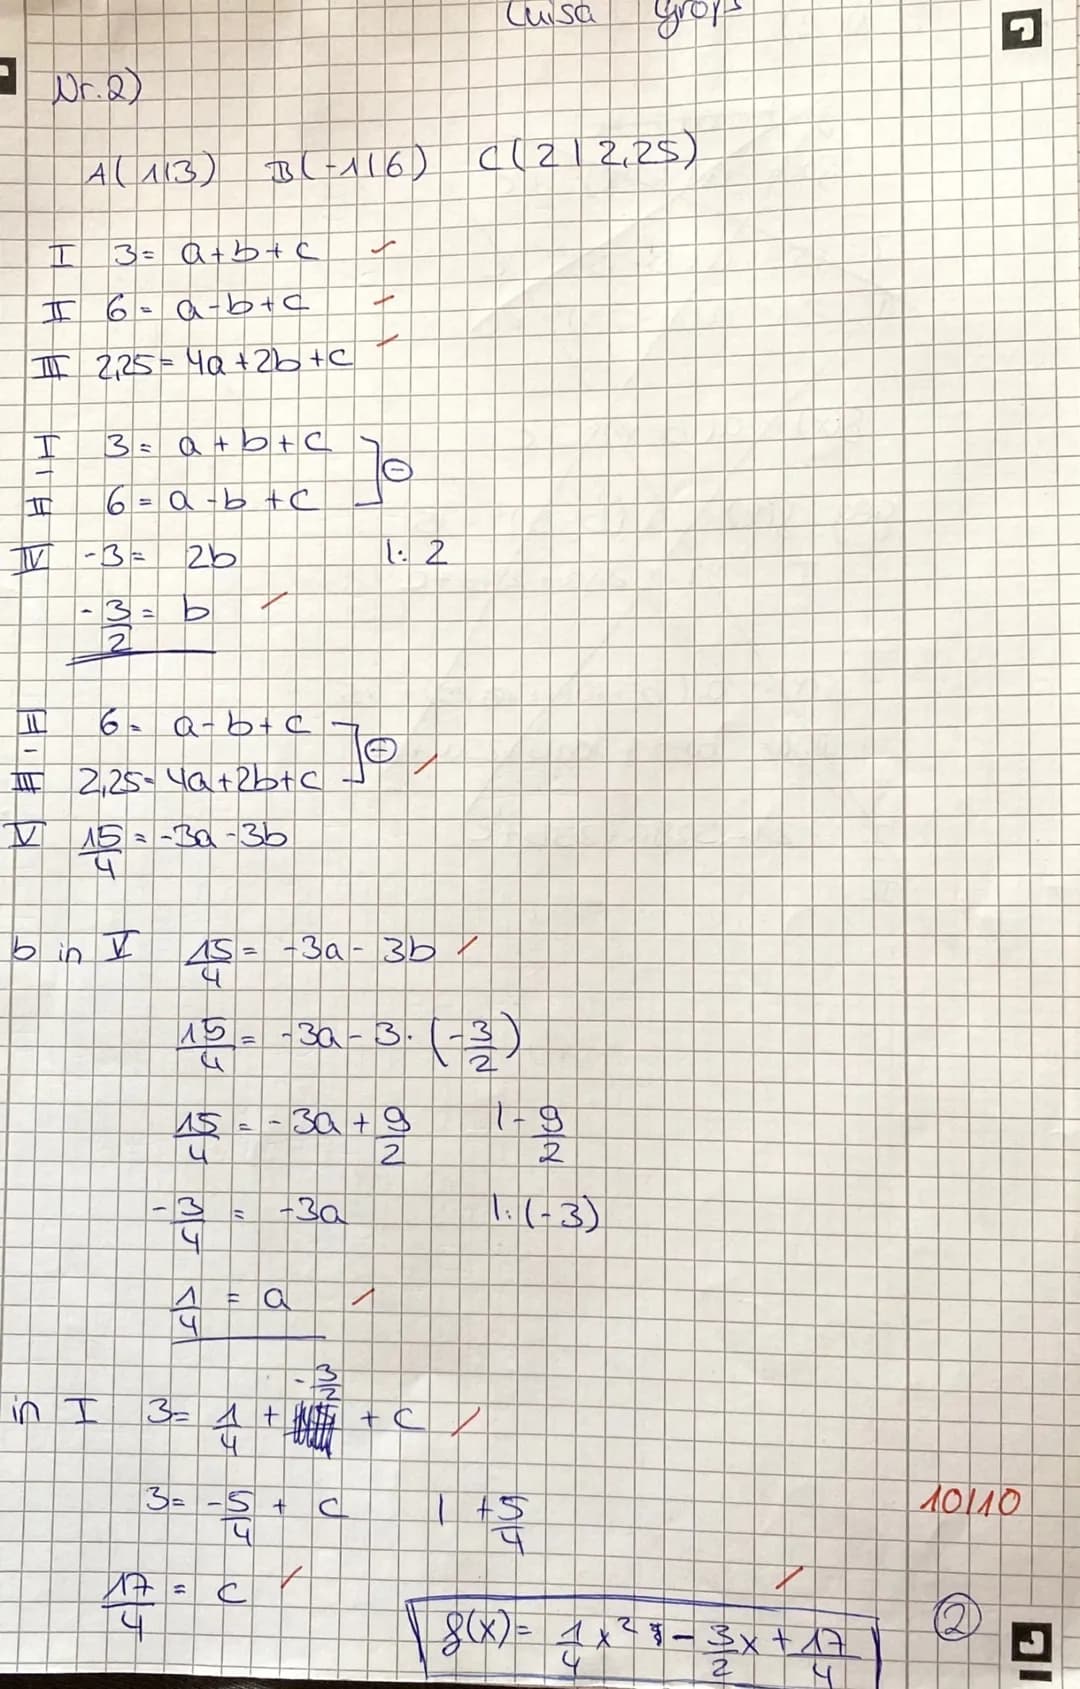 Luisa Groß
Nr. 2)
A(1|3) B(-1|6) C(2|2,25)
I 3 = a+b+c
II 6 = a-b+c
III 2,25 = 4a+2b+c
I 3 = a+b+c
-
II 6 = a-b+c ⊖
IV -3 = 2b |: 2
-3/2 = b
II 6 = a-b+c
-
III 2,25 = 4a+2b+c ⊖
V 15/4 = -3a-3b
b in V 15/4 = -3a-3b
15/4 = -3a-3·(-3/2)
15/4 = -3a+9/2 |-9/2
-3/4 = -3a |:(-3)
1/4 = a
in I 3 = 1/4 + -3/2 + c
3 = -5/4 + c | +5/4
10/10
17/4 = c
f(x) = 1/4x² - 3/2x + 17/4
②